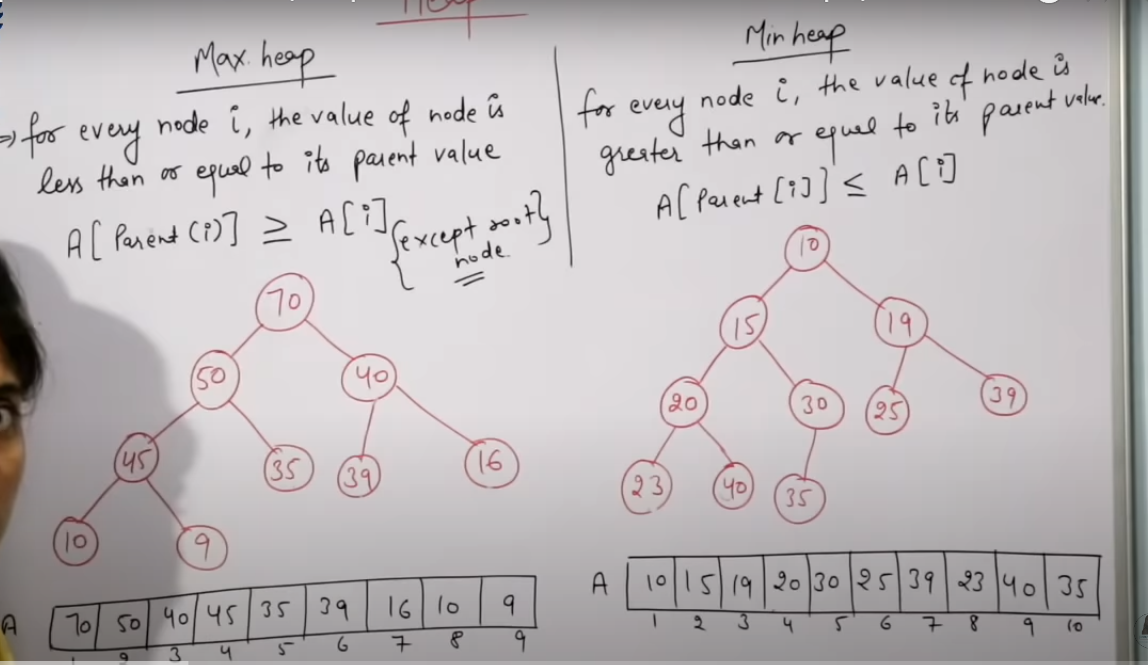 Heap
Max. heap
⇒ for every node i, the value of node is
less than or equal to its parent value
A[Parent(i)] ≥ A[i] {except root}
node
70
50 40
45 35 39 16
10 9
A 70 50 40 45 35 39 16 10 9
1 2 3 4 5 6 7 8 9
Min heap
for every node i, the value of node is
greater than or equal to its parent value.
A[Parent[i]] ≤ A[i]
10
15 19
20 30 25 39
23 40 35
A 10 15 19 20 30 25 39 23 40 35
1 2 3 4 5 6 7 8 9 10